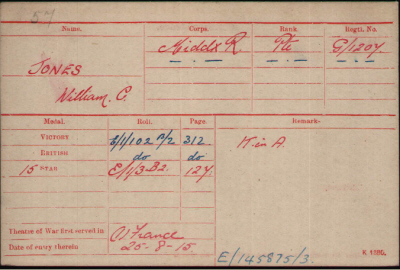 57
Name. Corps. Rank. Regtl. No.
JONES Middx R. Pte G/1207.
William. C.
Medal. Roll. Page. Remarks.
VICTORY E/1/102 B/2 312
BRITISH do do K. in A.
15 STAR E/1/3.B2. 127
Theatre of War first served in (1) France
Date of entry therein 25-8-15.
K 1380.
E/145875/3.